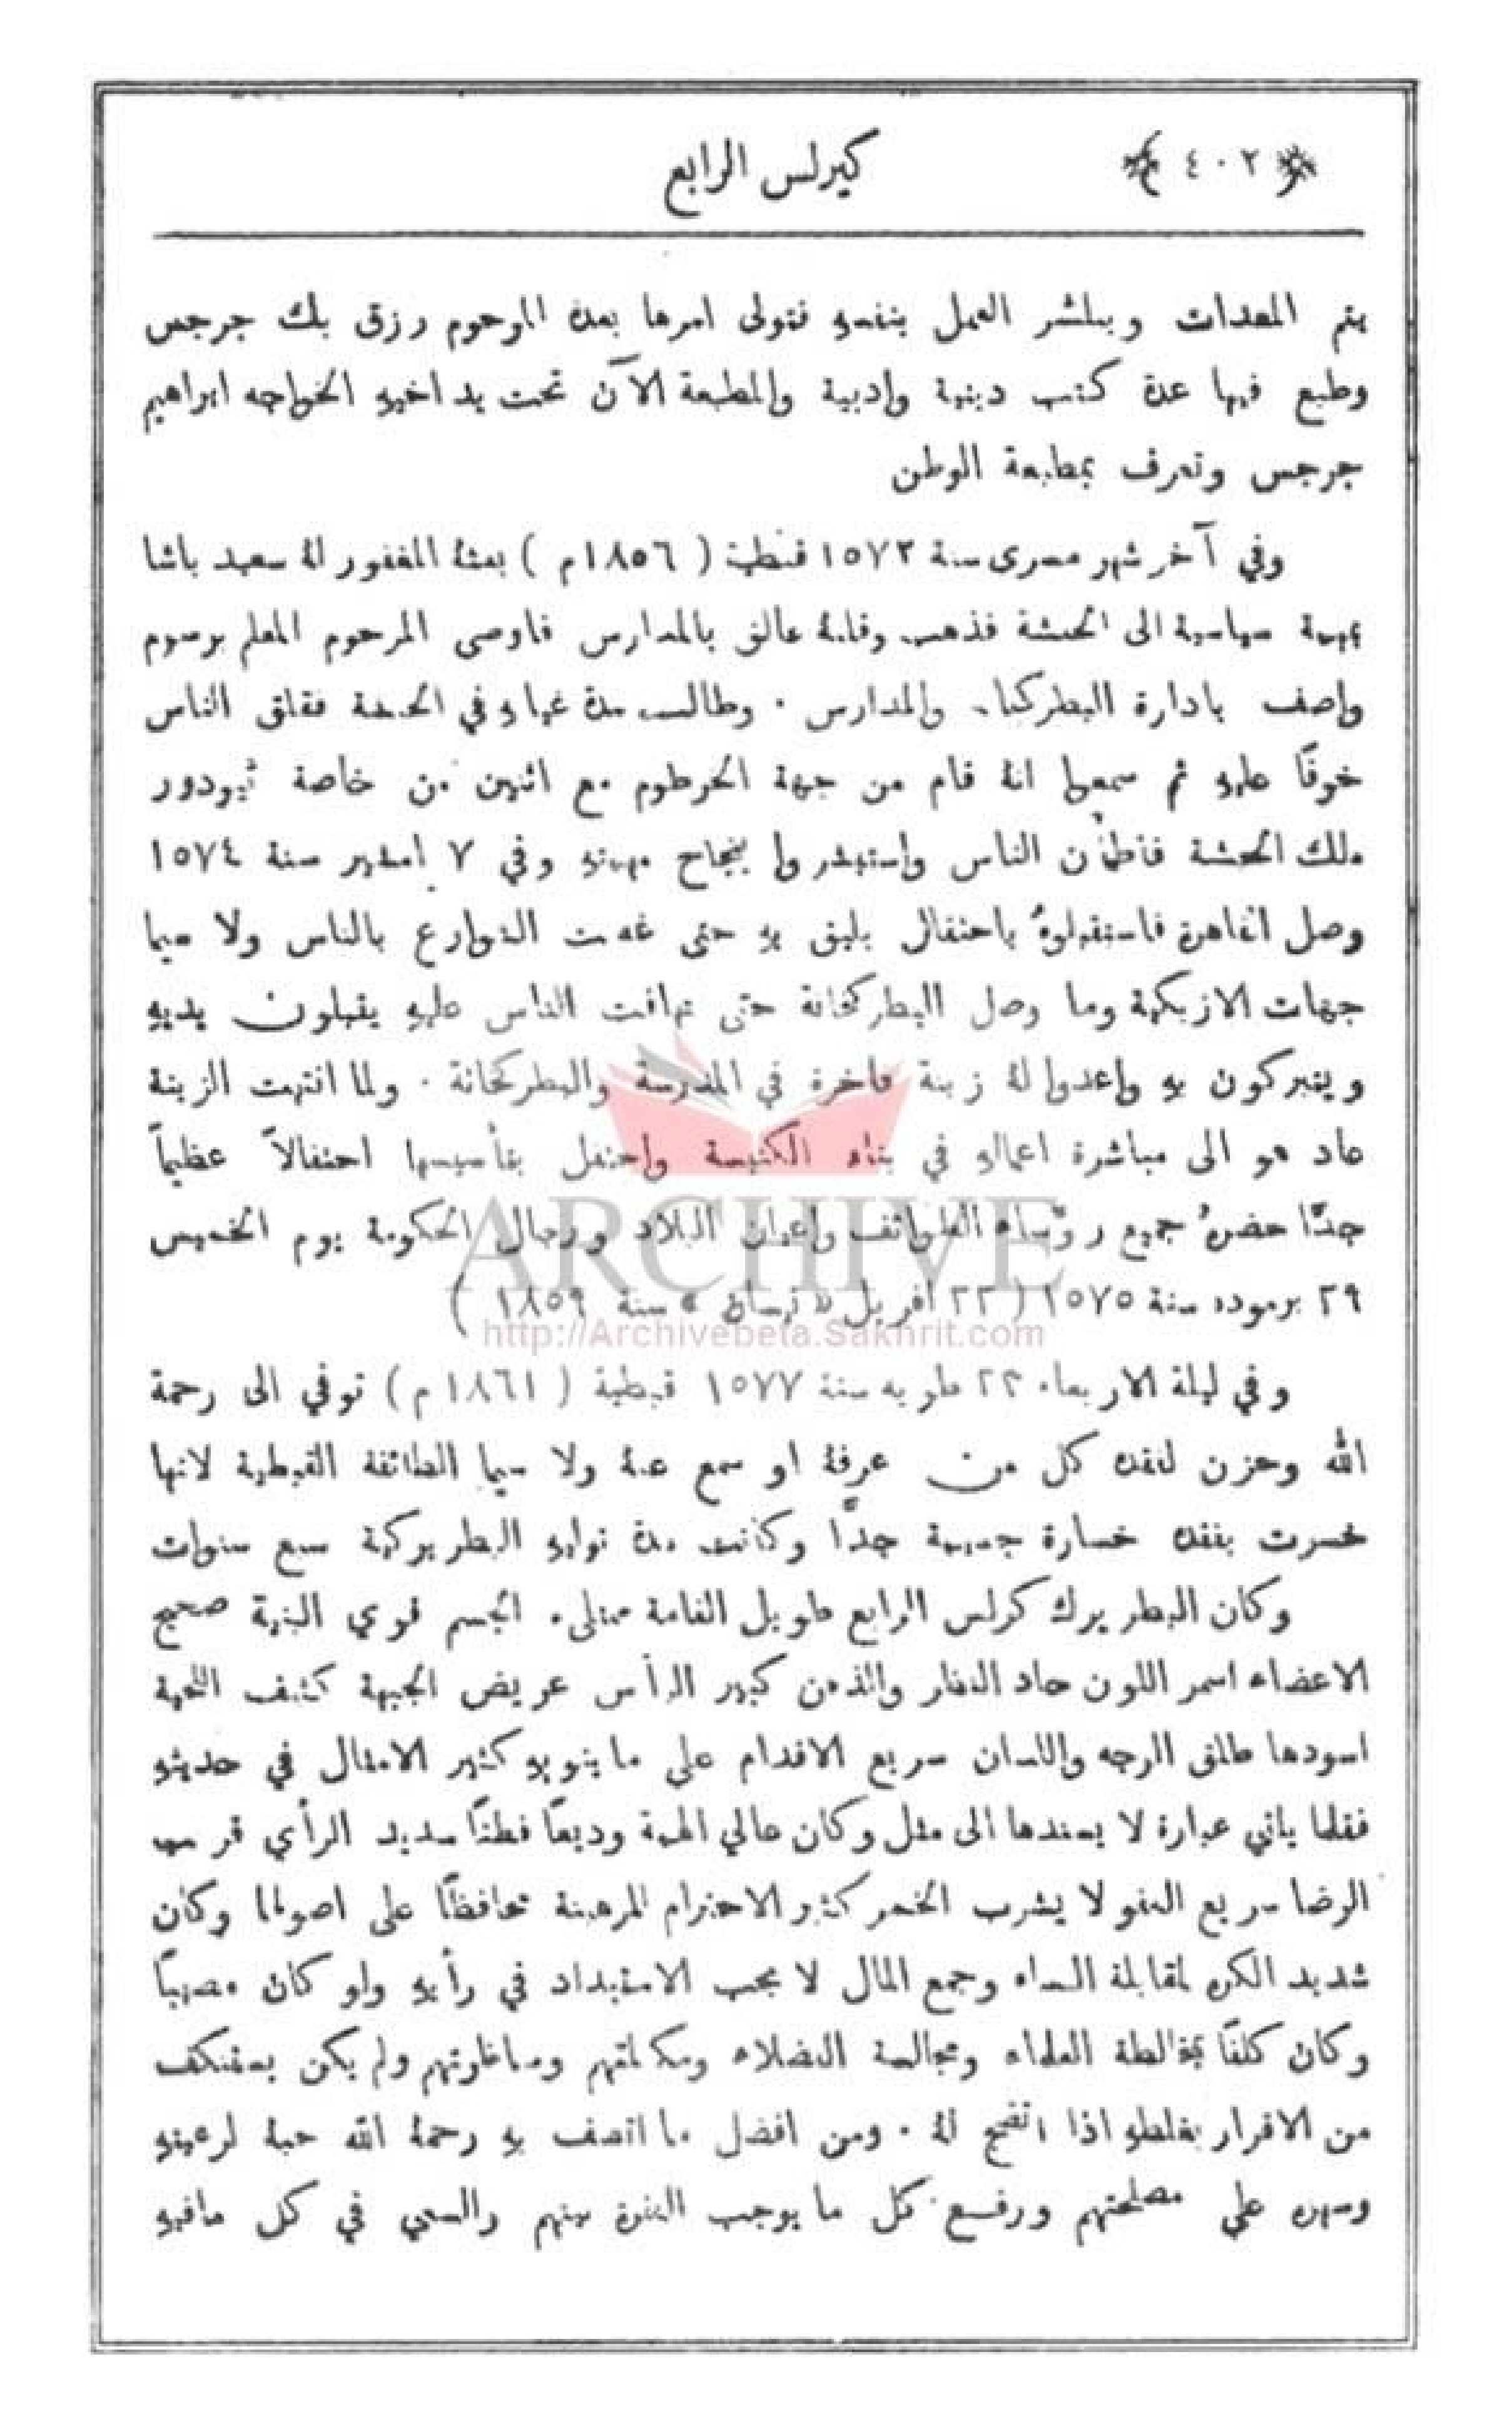 ﴿ ٤٠٢ ﴾ كيرلس الرابع
يتم المعدات ويباشر العمل بنفسهِ فتولى امرها بعدهُ المرحوم رزق بك جرجس
وطبع فيها عدة كتب دينية وادبية والمطبعة الآن تحت يد اخيهِ الخواجه ابراهيم
جرجس وتعرف بمطبعة الوطن
وفي آخر شهر مسرى سنة ١٥٧٢ قبطية ( ١٨٥٦ م ) بعثهُ المغفور لهُ سعيد باشا
بمهمة سياسية الى الحبشة فذهب وقلبهُ عالق بالمدارس فاوصى المرحوم المعلم برسوم
واصف بادارة البطركخانة والمدارس ٠ وطالت مدة غيابهِ في الحبشة فقلق الناس
خوفًا عليهِ ثم سمعوا انهُ قام من جهة الخرطوم مع اثنين من خاصة ثيودور
ملك الحبشة فاطمأن الناس واستبشروا بنجاح مهمتهِ وفي ٧ امشير سنة ١٥٧٤
وصل القاهرة فاستقبلوهُ باحتفال يليق بهِ حتى غصت الشوارع بالناس ولا سيما
جهات الازبكية وما وصل البطركخانة حتى تهافت الناس عليهِ يقبلون يديهِ
ويتبركون بهِ واعدوا لهُ زينة فاخرة في المدرسة والبطركخانة ٠ ولما انتهت الزينة
عاد هو الى مباشرة اعمالهِ في بناء الكنيسة واحتفل بتأسيسها احتفالاً عظيماً
جدًّا حضرهُ جميع روّساء الطوائف واعيان البلاد ورجال الحكومة يوم الخميس
٢٩ برموده سنة ١٥٧٥ ( ٢٢ افريل « نيسان » سنة ١٨٥٩ )
وفي ليلة الاربعاء ٢٢ طوبه سنة ١٥٧٧ قبطية ( ١٨٦١ م ) توفي الى رحمة
الله وحزن لفقدهِ كل من عرفهُ او سمع عنهُ ولا سيما الطائفة القبطية لانها
خسرت بفقدهِ خسارة جسيمة جدًّا وكانت مدة توليهِ البطريركية سبع سنوات
وكان البطريرك كرلس الرابع طويل القامة ممتلىء الجسم قوي البنية صحيح
الاعضاء اسمر اللون حاد النظر والذهن كبير الرأس عريض الجبهة كثيف اللحية
اسودها طلق الوجه واللسان سريع الاقدام على ما ينويهِ كثير الامثال في حديثهِ
فقلما يأتي عبارة لا يسندها الى مثل وكان عالي الهمة وديعًا فطنًا سديد الرأي قريب
الرضا سريع العفو لا يشرب الخمر كثير الاحترام للرهبنة محافظًا على اصولها وكان
شديد الكره لمقابلة النساء وجمع المال لا يحب الاستبداد في رأيهِ ولو كان مصيبًا
وكان كلفًا بمخالطة العلماء ومجالسة الفضلاء ومكالمتهم ومناظرتهم ولم يكن يستنكف
من الاقرار بغلطهِ اذا اتضح لهُ ٠ ومن افضل ما اتصف بهِ رحمهُ الله حبهُ لرعيتهِ
وسهره على مصلحتهم ورفع كل ما يوجب النفرة بينهم والسعي في كل مافيهِ
ARCHIVE
http://Archivebeta.Sakhrit.com